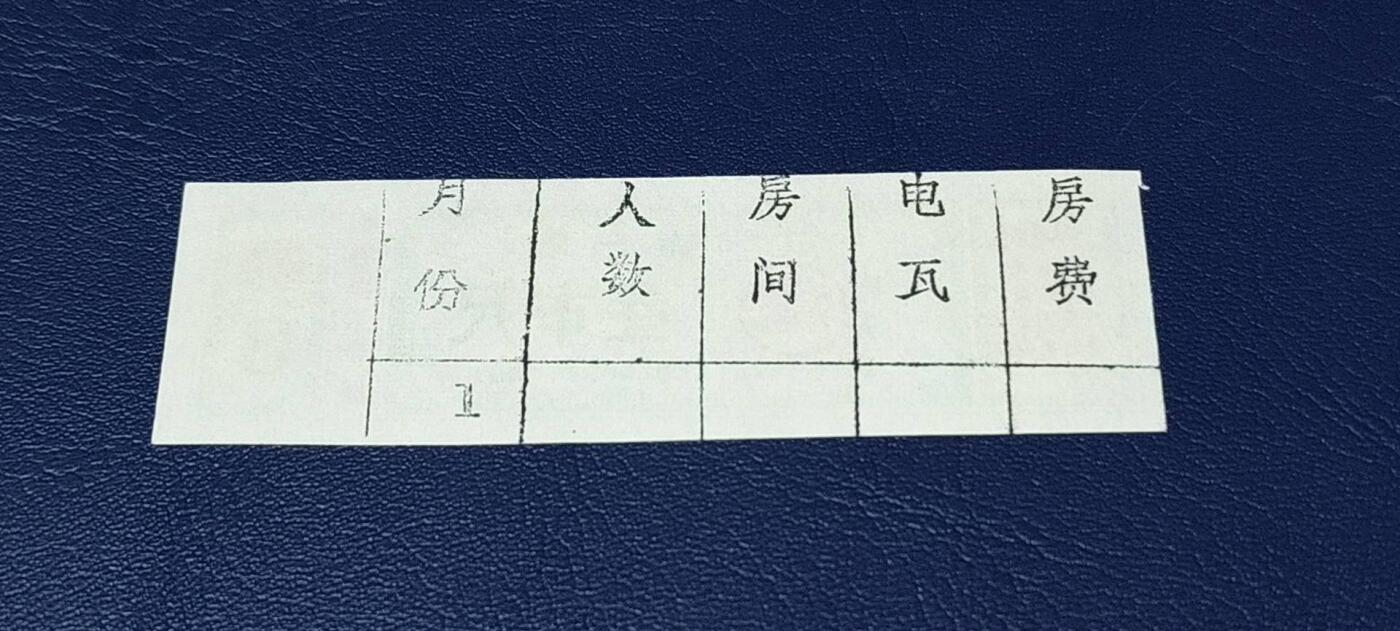 月份 人数 房间 电瓦 房费
1